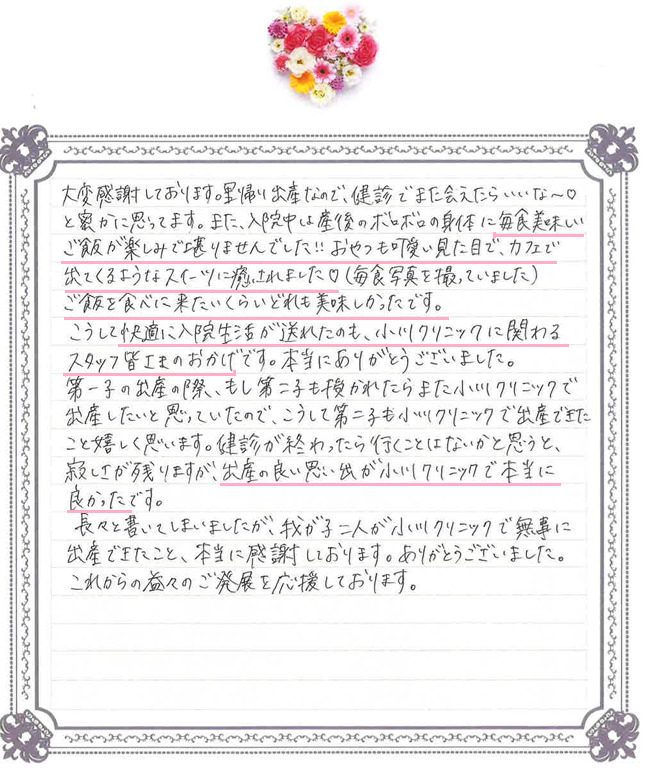 大変感謝しております。里帰り出産なので、健診でまた会えたらいいな〜♡
と密かに思ってます。また、入院中は産後のボロボロの身体に毎食美味しい
ご飯が楽しみで堪りませんでした!! おやつも可愛い見た目で、カフェで
出てくるようなスイーツに癒されました♡(毎食写真を撮っていました)
ご飯を食べに来たいくらいどれも美味しかったです。
こうして快適に入院生活が送れたのも、小川クリニックに関わる
スタッフ皆さまのおかげです。本当にありがとうございました。
第一子の出産の際、もし第二子も授かれたらまた小川クリニックで
出産したいと思っていたので、こうして第二子も小川クリニックで出産できた
こと嬉しく思います。健診が終わったら行くことはないかと思うと、
寂しさが残りますが、出産の良い思い出が小川クリニックで本当に
良かったです。
長々と書いてしまいましたが、我が子二人が小川クリニックで無事に
出産できたこと、本当に感謝しております。ありがとうございました。
これからの益々のご発展を応援しております。